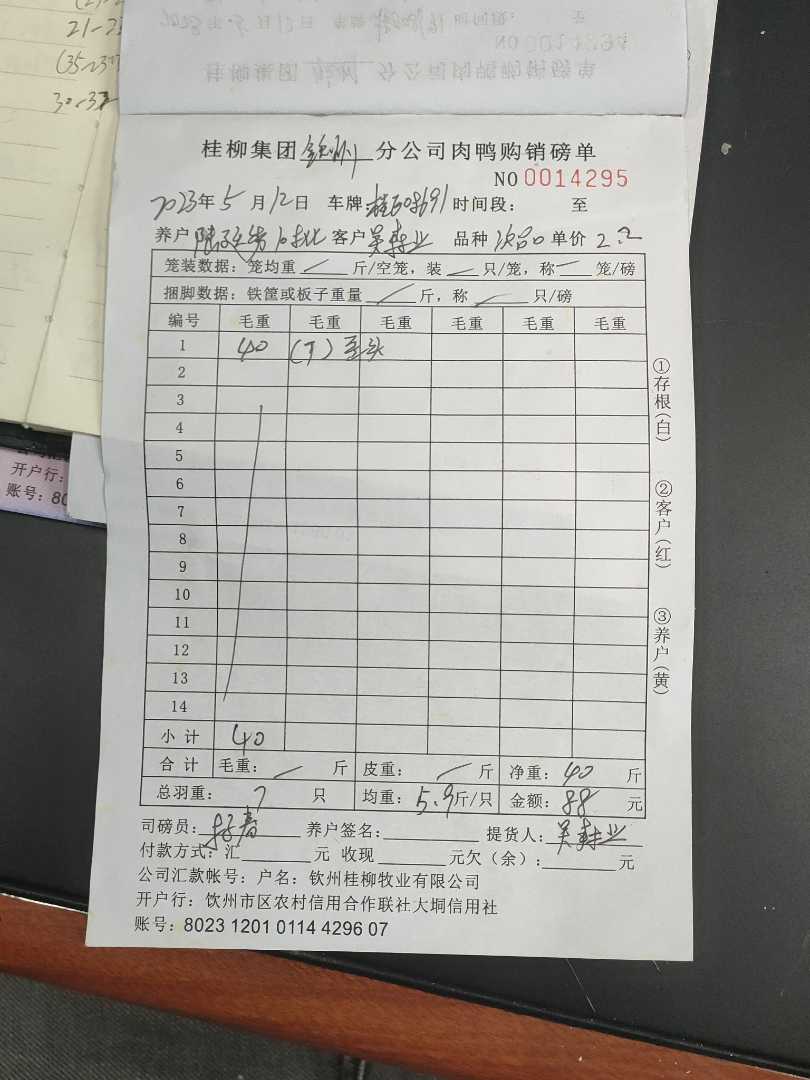 21-23
30-33
桂柳集团钦州分公司肉鸭购销磅单
NO 0014295
2023年5月12日 车牌: 时间段: 至
养户 客户 吴寿业 品种 次品 单价 2.2
笼装数据: 笼均重 斤/空笼, 装 只/笼, 称 笼/磅
捆脚数据: 铁筐或板子重量 斤, 称 只/磅
编号 毛重 毛重 毛重 毛重 毛重 毛重
1 40 (7)
2
3
4
5
6
7
8
9
10
11
12
13
14
小计 40
合计 毛重: 斤 皮重: 斤 净重: 40 斤
总羽重: 7 只 均重: 5.9斤/只 金额: 88 元
①存根(白) ②客户(红) ③养户(黄)
司磅员: 养户签名: 提货人: 吴寿业
付款方式: 汇 元 收现 元欠(余): 元
公司汇款帐号: 户名: 钦州桂柳牧业有限公司
开户行: 钦州市区农村信用合作联社大垌信用社
账号: 8023 1201 0114 4296 07
开户行:
账号: 80